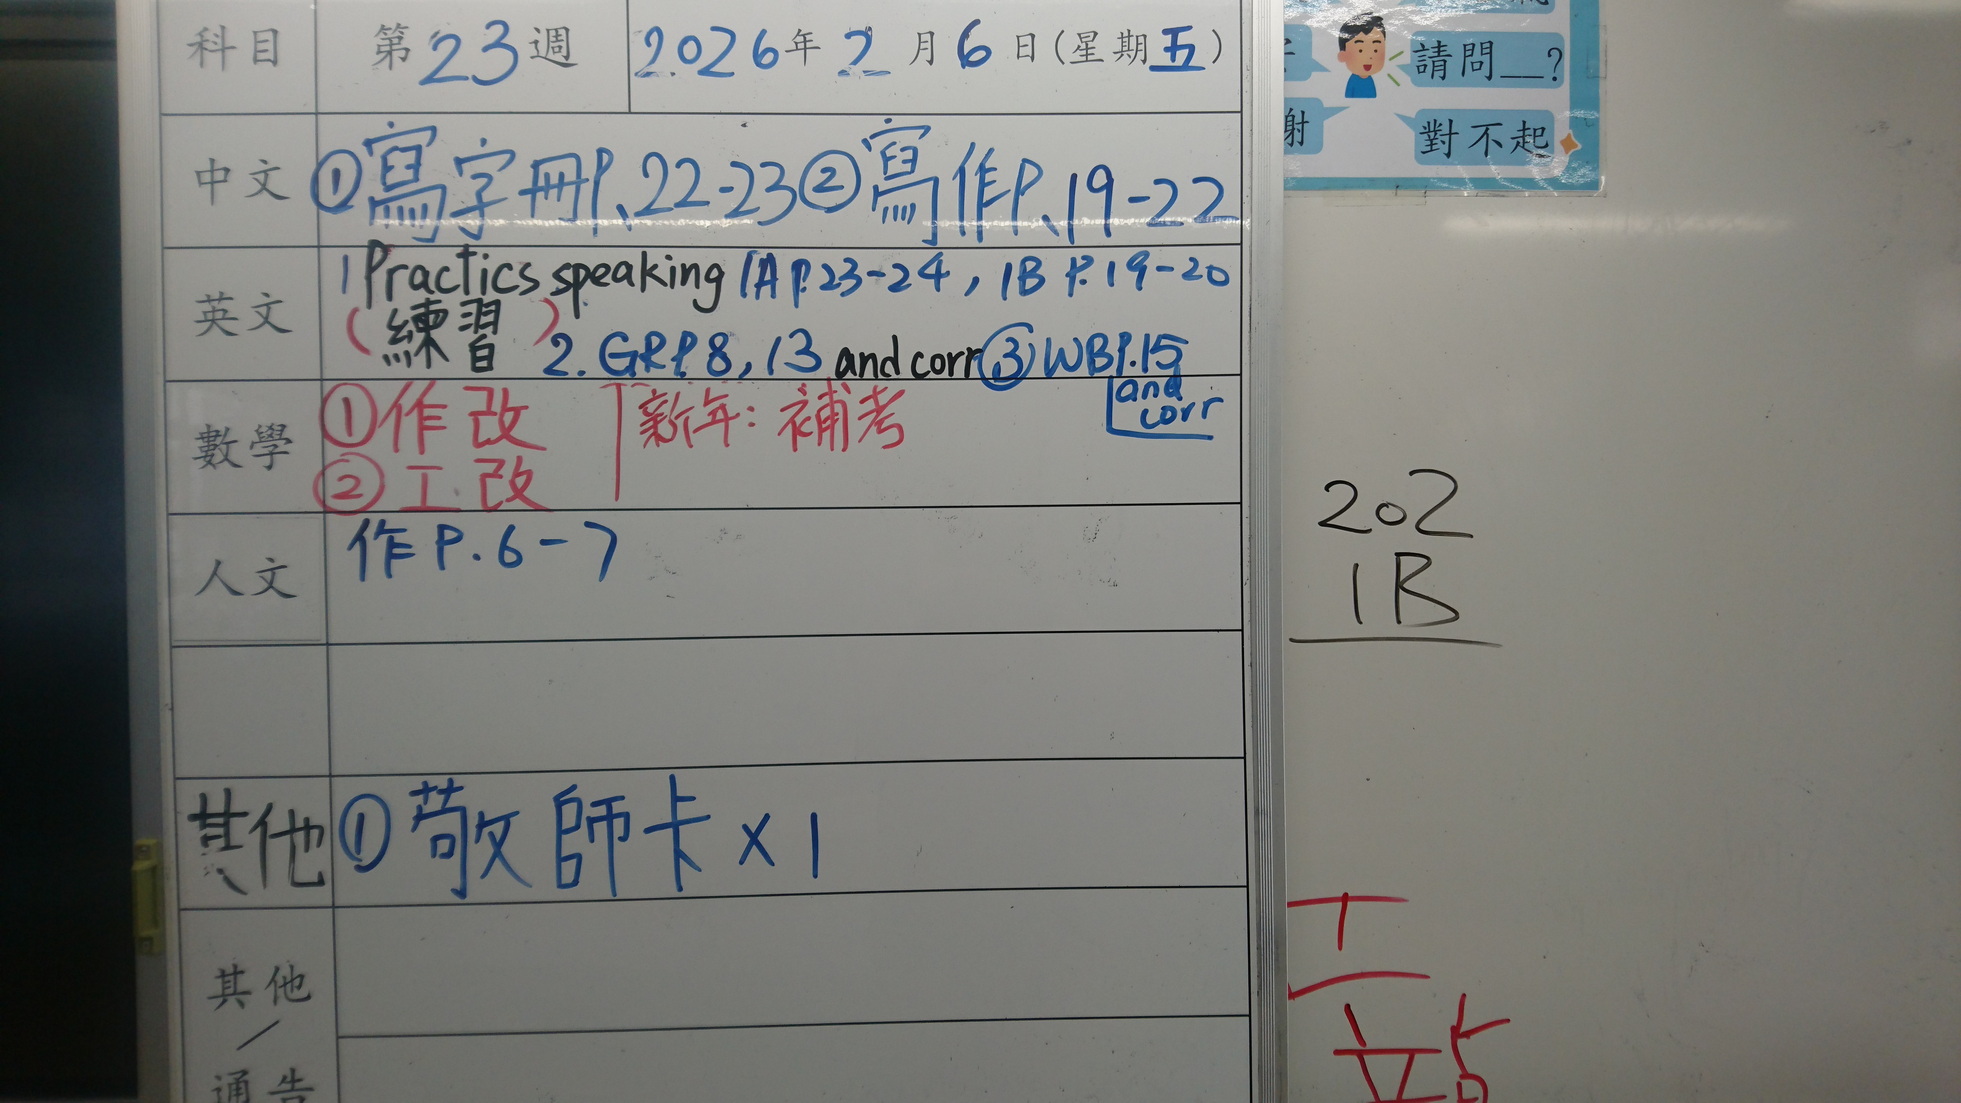 科目 第23週 2026年2月6日(星期五)
中文 ①寫字冊P.22-23②寫作P.19-22
英文 1 Practics speaking 1A P.23-24, 1B P.19-20
(練習) 2. GR P.8, 13 and corr ③ WB P.15
and
corr
數學 ①作改 新年：補考
②工改
人文 作P.6-7
其他 ①敬師卡×1
其他
/
通告
請問__?
謝
對不起
202
1B